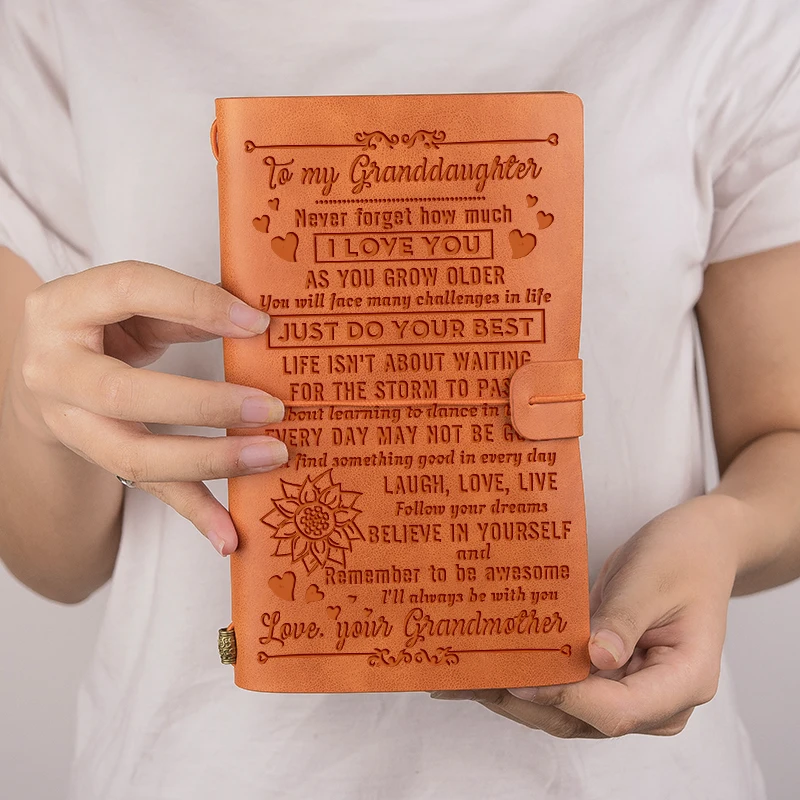 To my Granddaughter
Never forget how much
I LOVE YOU
AS YOU GROW OLDER
You will face many challenges in life
JUST DO YOUR BEST
LIFE ISN'T ABOUT WAITING
FOR THE STORM TO PAS
about learning to dance in
EVERY DAY MAY NOT BE
find something good in every day
LAUGH, LOVE, LIVE
Follow your dreams
BELIEVE IN YOURSELF
and
Remember to be awesome
I'll always be with you
Love, your Grandmother